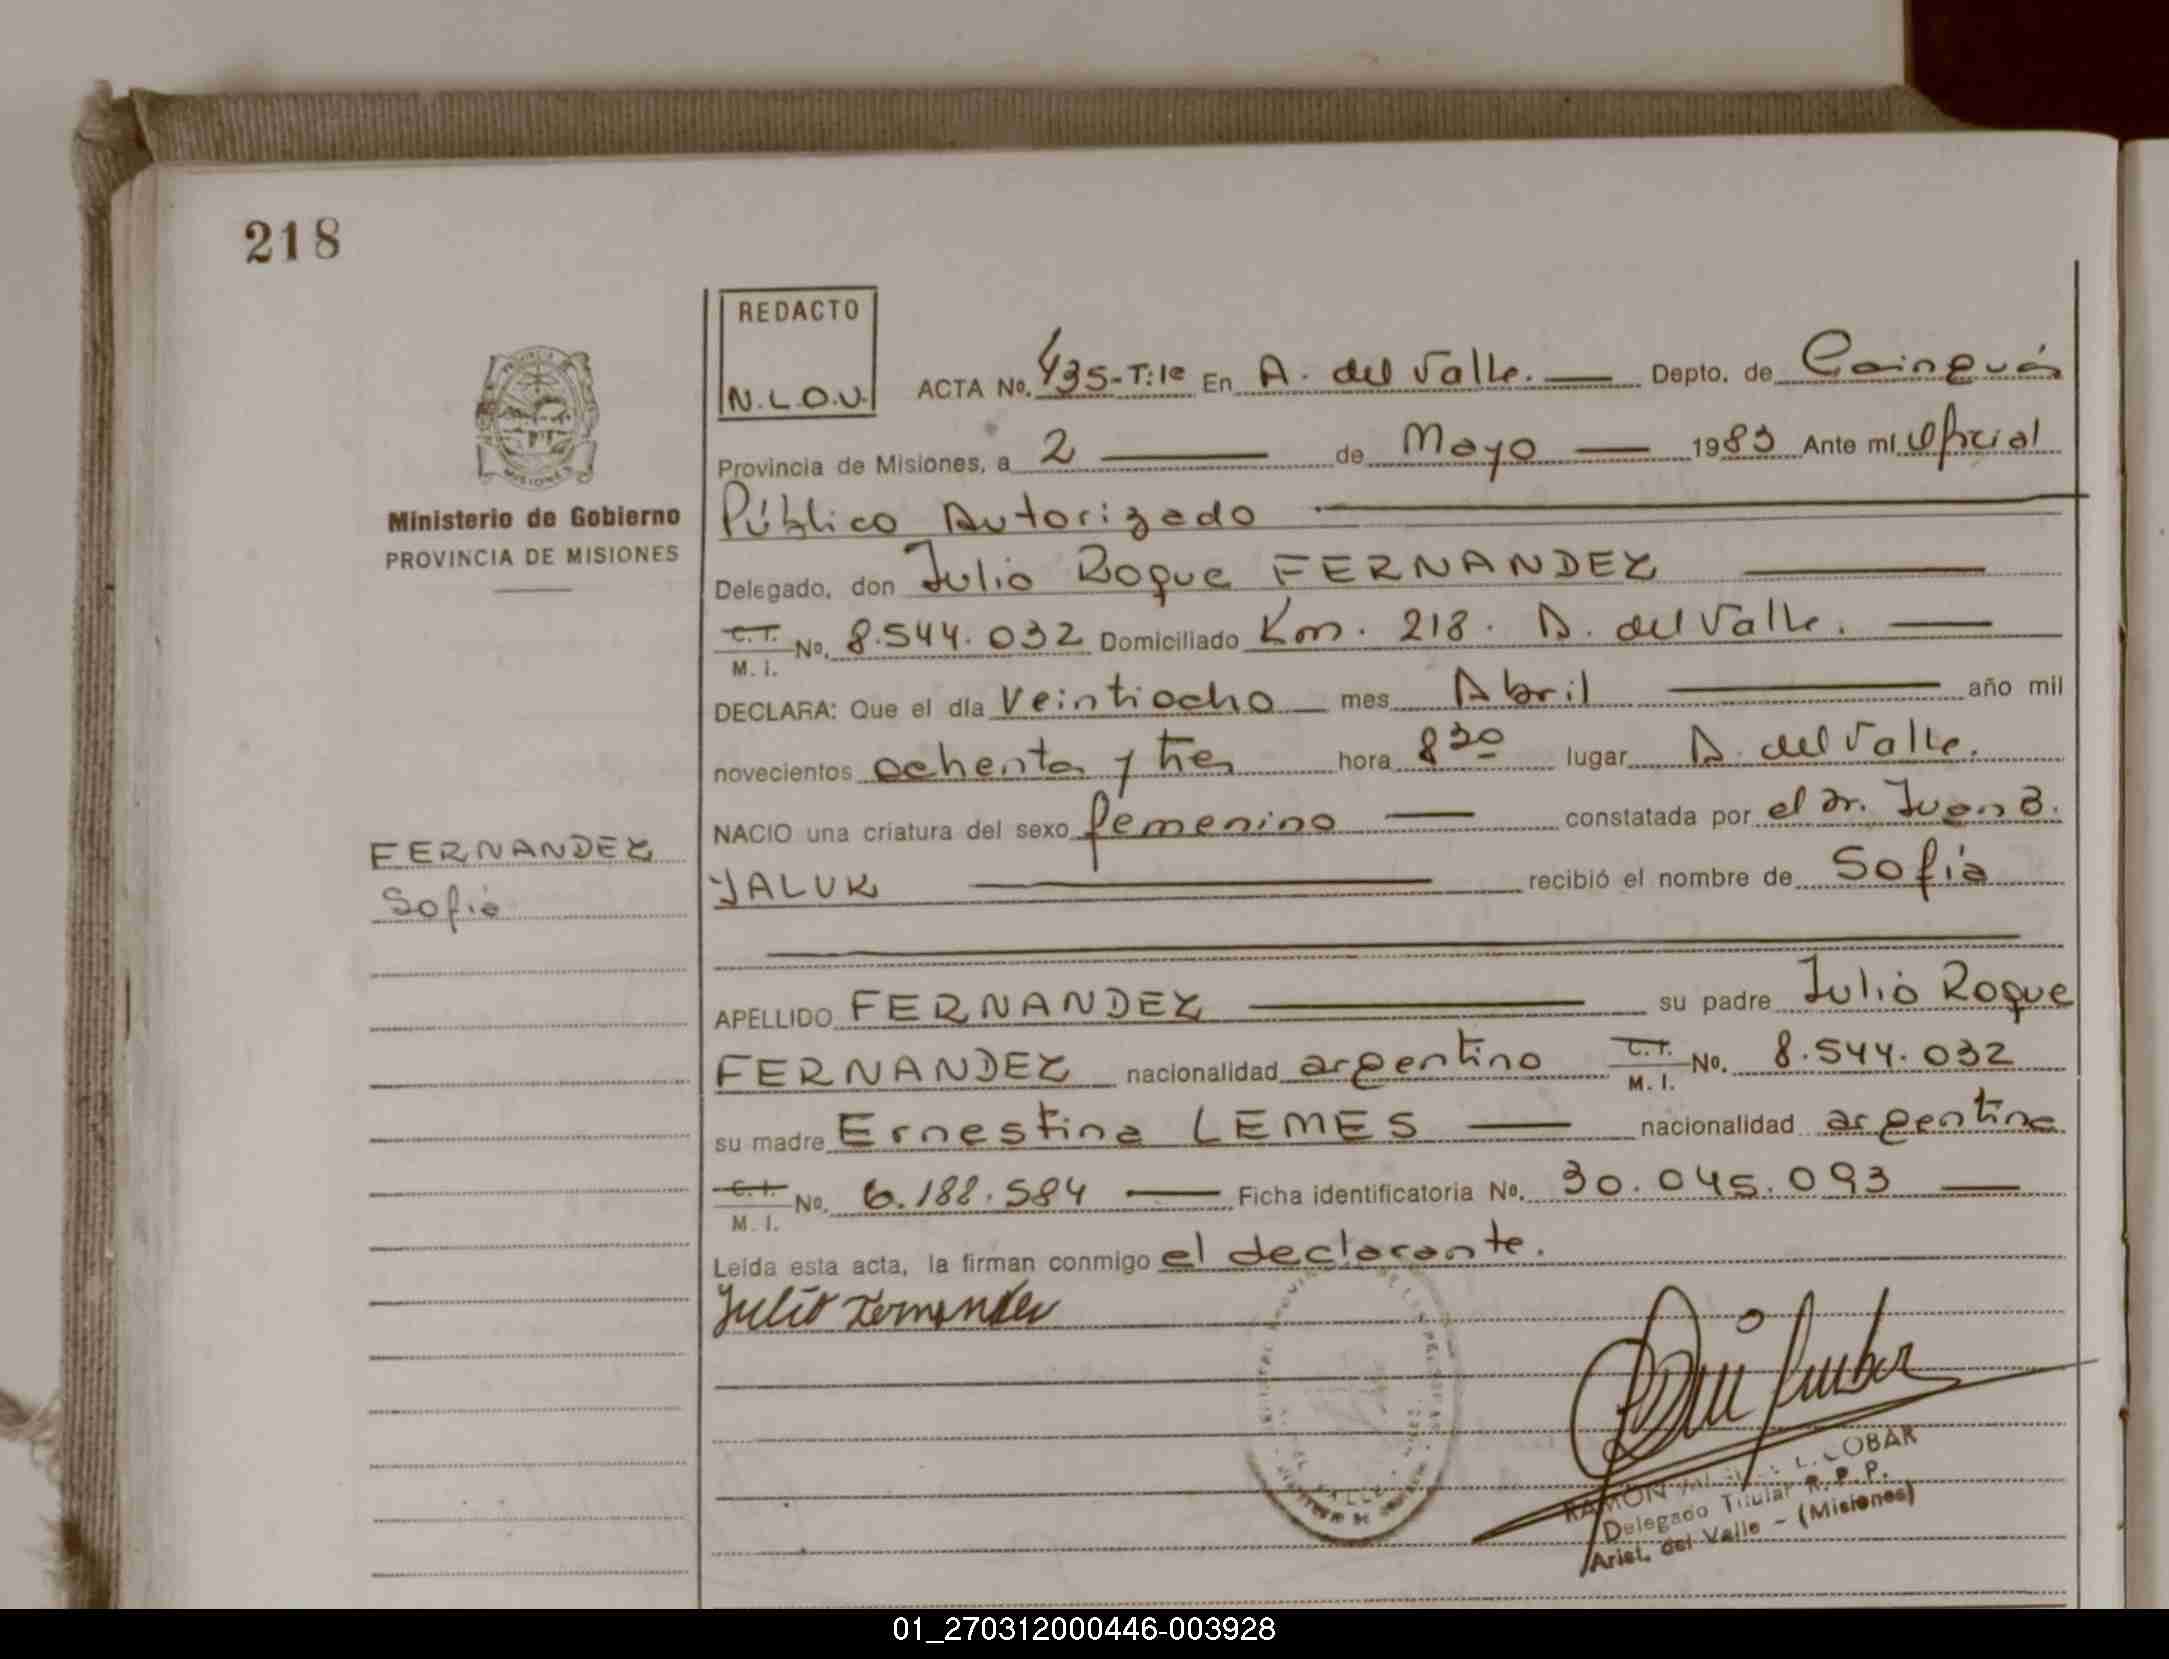 218
REDACTO
N.L.O.V.
ACTA No. 435-T:1º En A. del Valle. Depto. de Cainguás
Provincia de Misiones, a 2 de Mayo 1983 Ante mí Oficial
Público Autorizado
MISIONES
Ministerio de Gobierno
PROVINCIA DE MISIONES
Delegado, don Julio Roque FERNANDEZ
C. I. No. 8.544.032 Domiciliado Km. 218. A. del Valle.
M. I.
DECLARA: Que el día Veintiocho mes Abril año mil
novecientos ochenta y tres hora 8 30 lugar A. del Valle.
NACIO una criatura del sexo femenino constatada por el Dr. Juan B.
FERNANDEZ
YALUK recibió el nombre de Sofía
Sofía
APELLIDO FERNANDEZ su padre Julio Roque
FERNANDEZ nacionalidad argentino C. I. No. 8.544.032
M. I.
su madre Ernestina LEMES nacionalidad argentina
C. I. No. 6.188.584 Ficha identificatoria No. 30.045.093
M. I.
Leída esta acta, la firman conmigo el declarante.
Julio Fernandez
RAMON L. COBAR
Delegado Titular R. P. P.
Arist. del Valle - (Misiones)
01_270312000446-003928